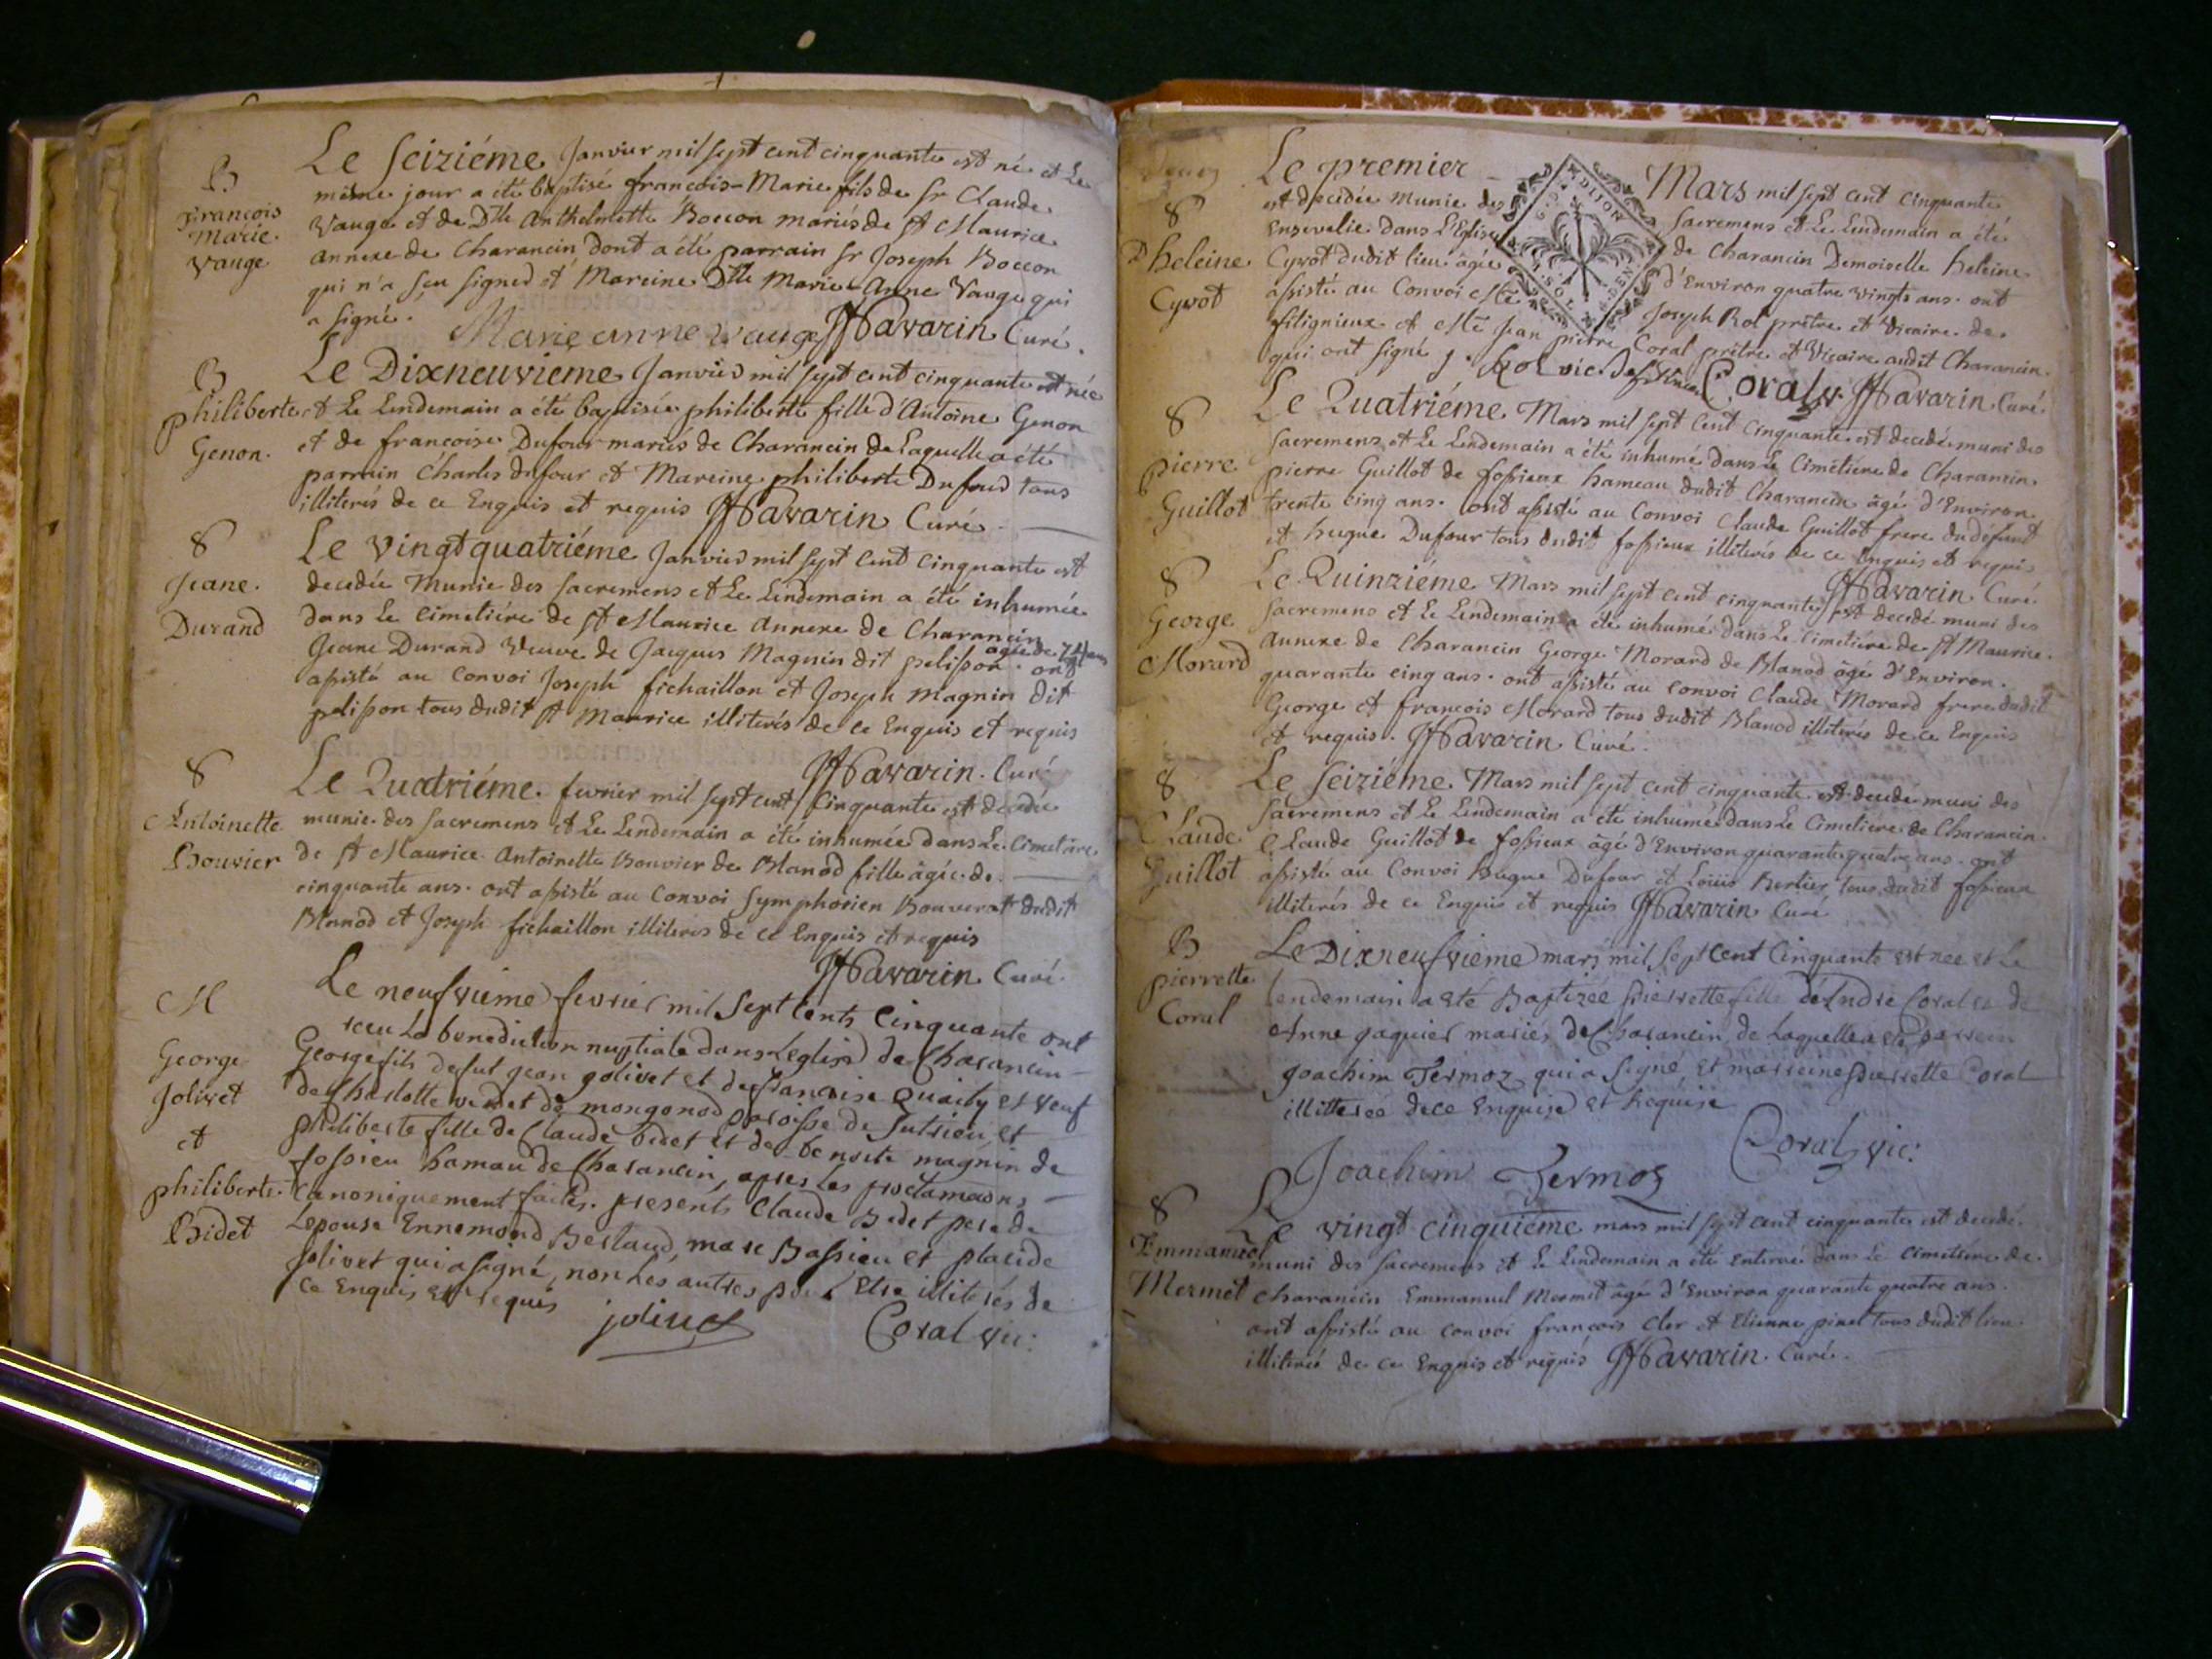 B
François
Marie
Vauge
Le Seiziéme Janvier mil sept cent cinquante est né et Le
même jour a été baptisé françois-Marie fils de Sr Claude
Vauge et de Dlle Anthelmette Boccon mariés de St Maurice
annexe de Charancin dont a été parrain Sr Joseph Boccon
qui n'a seu signer et Mareine Dlle Marie-Anne Vauge qui
a signé.
Marie anne Vauge Havarin Curé.
B
philiberte
Genon.
Le Dixneuvieme Janvier mil sept cent cinquante est née
et Le Lendemain a été baptisée philiberte fille d'Antoine Genon
et de francoise Dufour mariés de Charancin de Laquelle a été
parrain Charles dufour et Mareine philiberte Dufour tous
illiterés de ce Enquis et requis Havarin Curé
S
Jeane.
Durand
Le vingtquatriéme Janvier mil sept cent cinquante est
decedée Munie des Sacremens et Le Lendemain a été inhumée
dans Le Cimetiére de St Maurice Annexe de Charancin
agée de 74 ans
Jeane Durand Veuve de Jacques Magnin dit pelisson. ont
assisté au Convoi Joseph fichaillon et Joseph Magnin dit
pelisson tous dudit St Maurice illiterés de ce Enquis et requis
Havarin. Curé
S
Antoinette
Bouvier
Le Quatriéme. fevrier mil sept cent Cinquante est decedée
munie des Sacremens et Le Lendemain a été inhumée dans Le Cimetiére
de St Maurice Antoinette Bouvier de Blanod fille âgée de
cinquante ans. ont assisté au Convoi Symphorien Bouverat dudit
Blanod et Joseph fichaillon illiteres de ce Enquis et requis
Havarin Curé.
M
George
Jolivet
et
philiberte
Bidet
Le neufvieme fevrier mil Sept Cents Cinquante ont
receu La benediction nuptiale dans Leglise de Charancin
George fils de fut jean jolivet et de françoise Quaity et veuf
de Charlotte verdet de mongonod paroisse de Sutrieu, et
philiberte fille de Claude bidet et de benoite magnin de
fossieu hamau de Charancin, apres les proclamaons
Canoniquement faites. presents Claude Bidet pere de
Lepouse Ennemond Berlaud, marc Bassieu et placide
jolivet qui a signé, non Les autres pour Etre illiterés de
ce Enquis et requis
jolivet
Coral vic:
S
D heleine.
Cyvot
Le premier Mars mil sept cent cinquante
est decedée munie des Sacremens et Le Lendemain a été
Ensevelie dans L'Eglise de Charancin Demoiselle heleine
Cyvot dudit lieu âgée d'Environ quatre vingts ans. ont
assisté au Convoi Joseph Rol prêtre et Vicaire de
Jean pierre Coral prêtre et Vicaire audit Charancin
qui ont signé J. Rol vic. Coral v. Havarin Curé.
DIJON
S
pierre
Guillot
Le Quatriéme Mars mil sept Cent Cinquante est decedé muni des
Sacremens et Le Lendemain a été inhumé dans Le Cimetiére de Charancin
pierre Guillot de fossieux hameau dudit Charancin âgé d'Environ
trente cinq ans. ont assisté au Convoi Claude Guillot frere du défunt
et hugue Dufour tous dudit fossieux illiterés de ce Enquis et requis
Havarin Curé
S
George
Morard
Le Quinziéme Mars mil sept cent cinquante est decedé muni des
Sacremens et Le Lendemain a été inhumé dans Le Cimetiére de St Maurice.
Annexe de Charancin George Morard de Blanod âgé d'Environ.
quarante cinq ans. ont assisté au Convoi Claude Morard frere dudit
George et françois Morard tous dudit Blanod illiterés de ce Enquis
et requis. Havarin Curé.
S
Claude
Guillot
Le Seiziéme Mars mil sept cent cinquante est decedé muni des
Sacremens et Le Lendemain a été inhumé dans Le Cimetiére de Charancin.
Claude Guillot de fossieux âgé d'Environ quarante quatre ans. ont
assisté au Convoi hugue Dufour et Loüis Bertier tous dudit fossieux
illiterés de ce Enquis et requis Havarin Curé
B
pierrette
Coral
Le Dixneufvieme mars mil sept Cent Cinquante est née et Le
Lendemain a eté Baptizée pierrette fille d'Andre Coral et de
Anne gaquier mariés de Charancin, de Laquelle a eté parrein
joachim Termoz qui a signé et marreine pierrette Coral
illitterée de ce Enquise et Requise
Coral vic:
Joachim Termoz
S
Emmanuel
Mermet
Le vingt cinquiéme mars mil sept cent cinquante est decedé.
muni des Sacremens et Le Lendemain a été Enterré dans Le Cimetiére de
Charancin Emmanuel Mermet âgé d'Environ quarante quatre ans.
ont assisté au convoi françois Cler et Etienne pinel tous dudit lieu
illiterés de ce Enquis et requis Havarin. Curé.